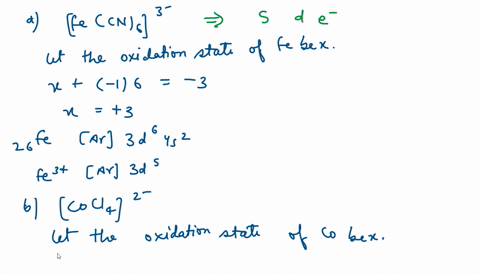 a) [Fe (CN)₆]³⁻ ⇒ 5 d e⁻
Let the oxidation state of Fe be x.
x + (-1) 6 = -3
x = +3
₂₆Fe [Ar] 3d⁶ 4s²
Fe³⁺ [Ar] 3d⁵
b) [CoCl₄]²⁻
Let the oxidation state of Co be x.